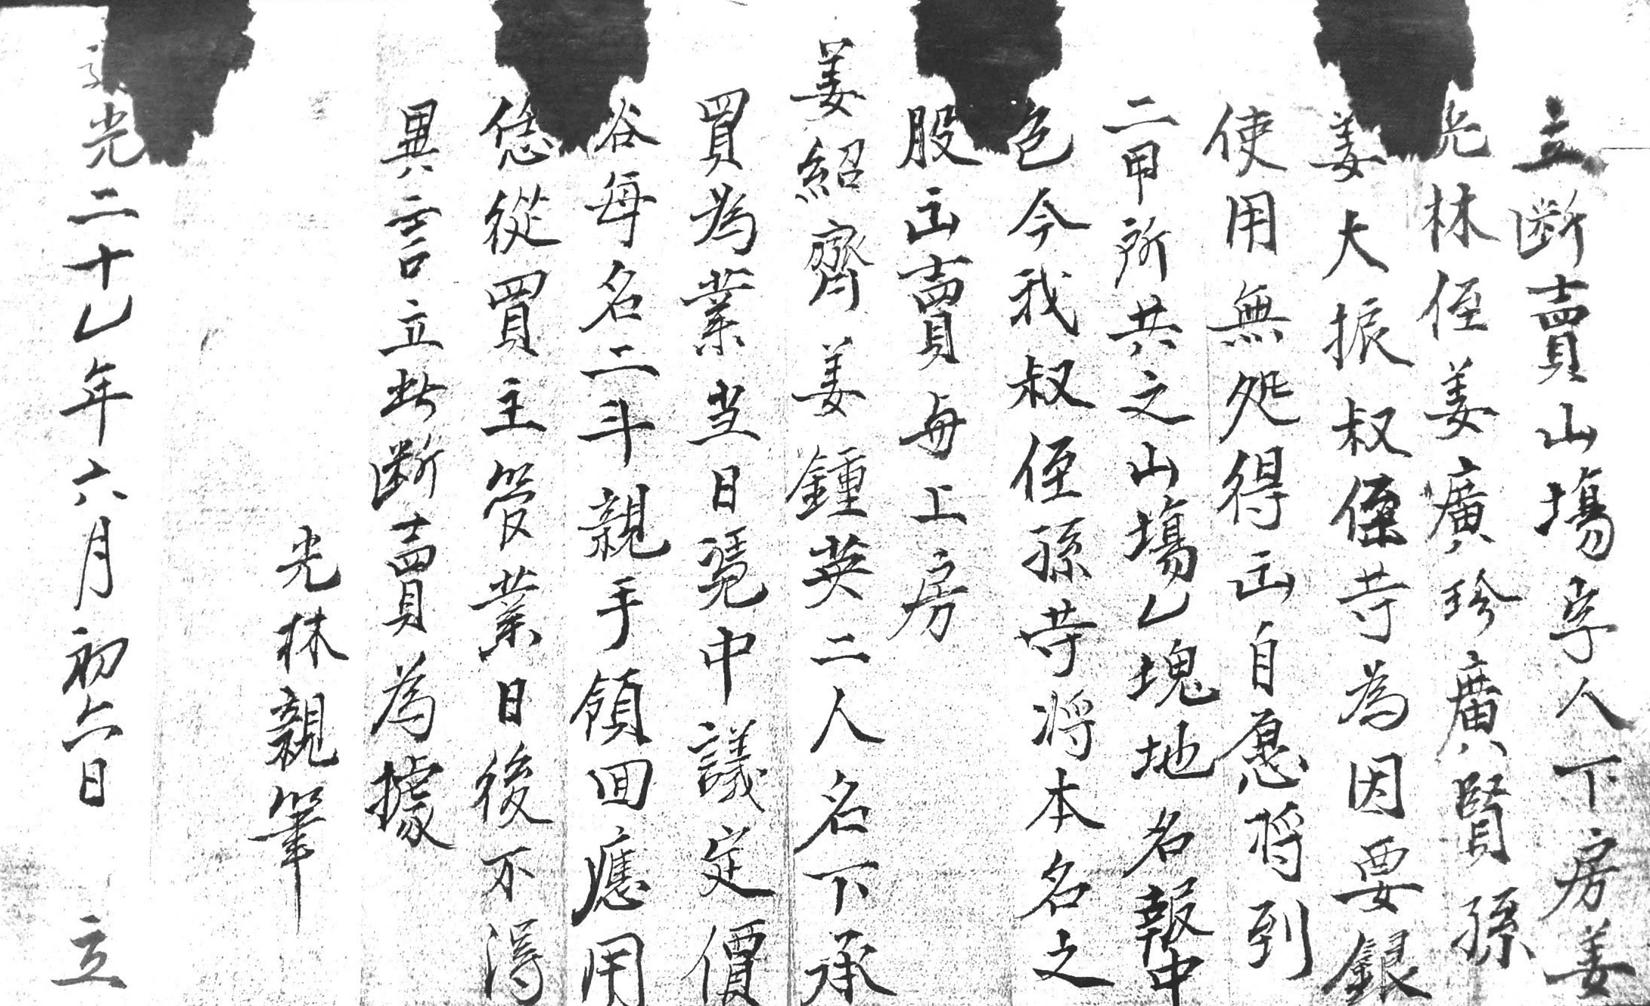 立断賣山塲字人下房姜
光林侄姜廣珍廣賢孫
姜大振叔侄䓁為因要銀
使用無処得出自愿将到
二甲所共之山塲乙塊地名報中
色今我叔侄孫䓁将本名之
股出賣与上房
姜紹齊姜鍾英二人名下承
買為業当日凴中議定價
谷每名二斗親手領回應用
恁從買主管業日後不得
異言立此断賣為據
光林親筆
光二十乙年六月初六日 立